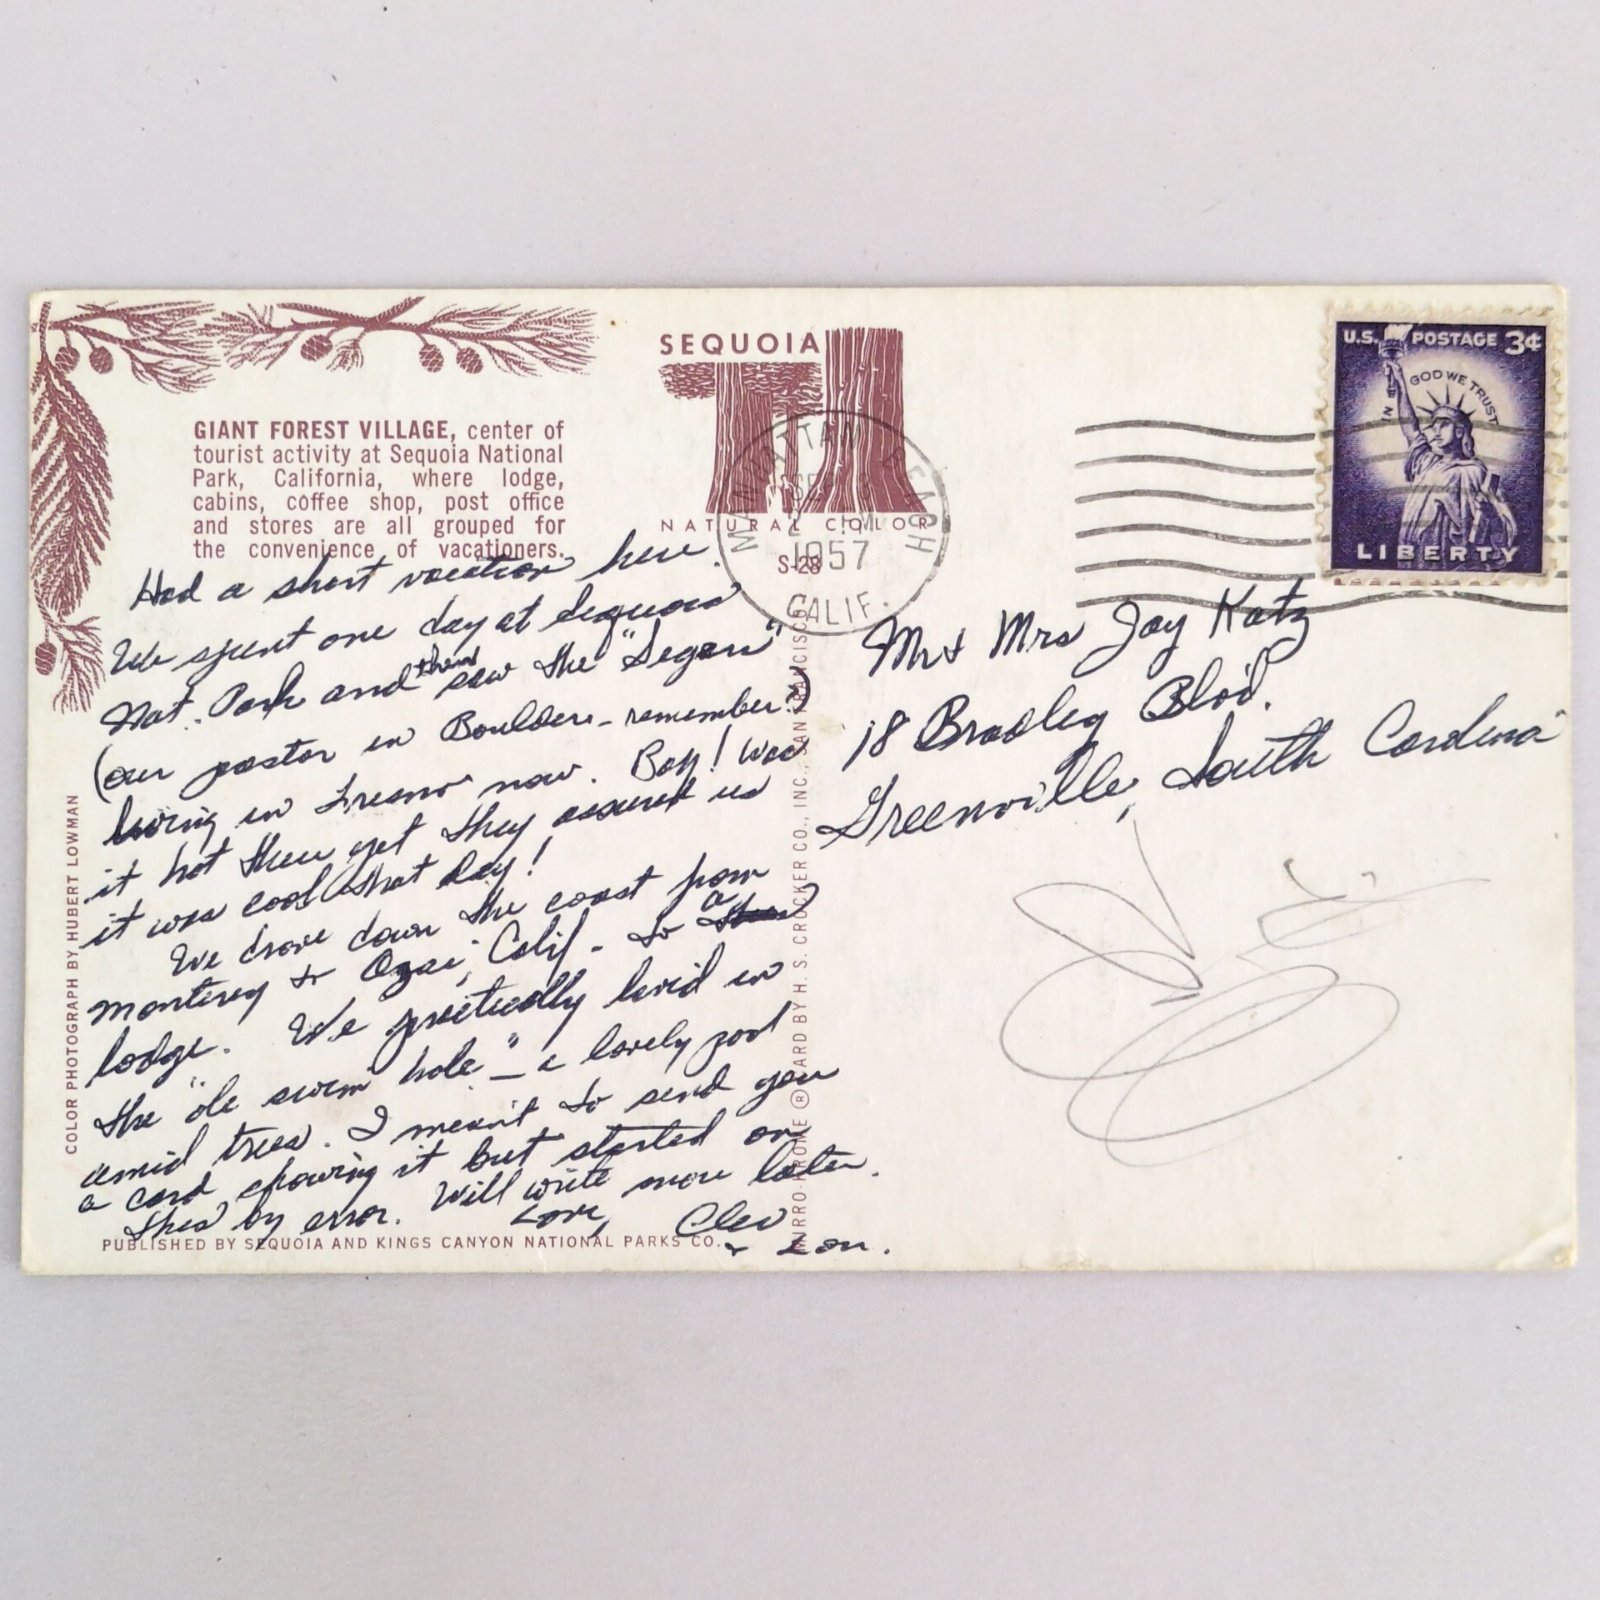 GIANT FOREST VILLAGE, center of
tourist activity at Sequoia National
Park, California, where lodge,
cabins, coffee shop, post office
and stores are all grouped for
the convenience of vacationers.
SEQUOIA
NATURAL COLOR
S-28
MANHATTAN BEACH
SEP
1957
CALIF.
U.S. POSTAGE 3¢
IN GOD WE TRUST
LIBERTY
Had a short vacation here.
We spent one day at Sequoia
Nat. Park and then saw the "Segars"
(our pastor in Boulder - remember?)
living in Fresno now. Boy! was
it hot there yet they assured us
it was cool that day!
We drove down the coast from
Monterey to Ozai, Calif - to a
lodge. We practically lived in
the "ole swim hole" - a lovely pool
amid trees. I meant to send you
a card showing it but started on
this by error. Will write more later.
Love, Cleo
+ Lou.
Mr + Mrs Jay Katz
18 Bradley Blvd.
Greenville, South Carolina
COLOR PHOTOGRAPH BY HUBERT LOWMAN
PUBLISHED BY SEQUOIA AND KINGS CANYON NATIONAL PARKS CO.
MIRRO-KROME ® CARD BY H. S. CROCKER CO., INC., SAN FRANCISCO